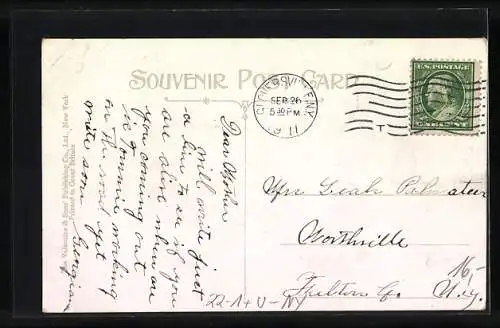 SOUVENIR POST CARD
The Valentine & Sons' Publishing Co., Ltd., New York
Printed in Great Britain
GLOVERSVILLE, N.Y.
SEP 26
5 30 PM
1911
U.S. POSTAGE
Dear Mother
will write just
a line to see if you
are alive when are
you coming out
is Tommie working
on the road yet
write soon
Georgiana
Mrs Leah Palmateer
Northville
Fulton Co N.Y.
16,-
22-1+U-NY